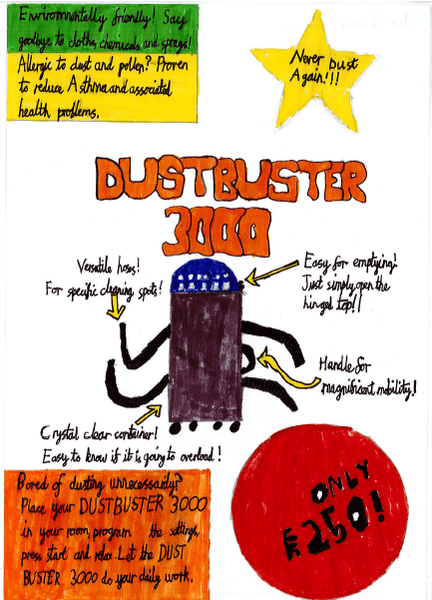 Environmentally friendly! Say
goodbye to cloths, chemicals and sprays!
Allergic to dust and pollen? Proven
to reduce Asthma and associated
health problems.
Never Dust
Again!!!
DUSTBUSTER
3000
Versatile hoses!
For specific cleaning spots!
Easy for emptying!
Just simply open the
hinged top!!
Handle for
magnificent mobility!
Crystal clear container!
Easy to know if it is going to overload!
Bored of dusting unnecessarily?
Place your DUSTBUSTER 3000
in your room, program the settings,
press start and relax. Let the DUST
BUSTER 3000 do your daily work.
ONLY
£250!